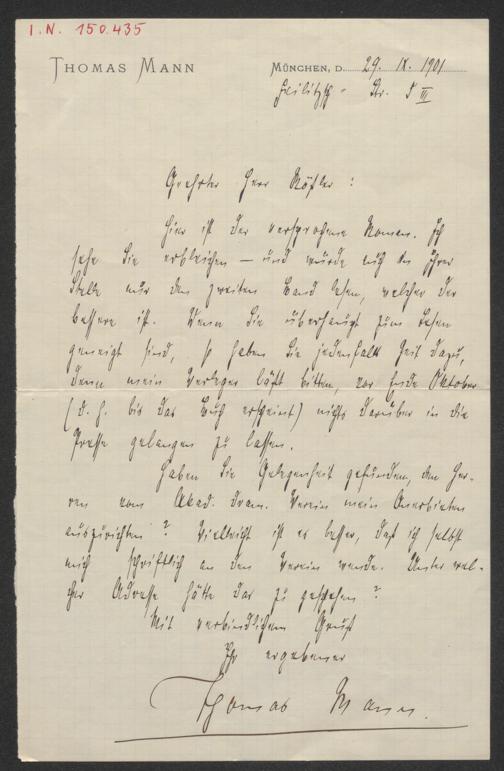 I.N. 150.435
THOMAS MANN
MÜNCHEN, D. 29. IX. 1901
Feilitzsch-Str. 5 III
Geehrter Herr Rößler:
Hier ist der versprochene Roman. Ich
sehe Sie erbleichen — und würde auch an Ihrer
Stelle nur den zweiten Band lesen, welcher der
bessere ist. Wenn Sie überhaupt zum Lesen
geneigt sind, so haben Sie jedenfalls Zeit dazu,
denn mein Verleger läßt bitten, vor Ende Oktober
(d. h. bis das Buch erscheint) nichts darüber in die
Presse gelangen zu lassen.
Haben Sie Gelegenheit gefunden, den Her-
ren vom Akad. Dram. Verein mein Anerbieten
auszurichten? Vielleicht ist es besser, daß ich selbst
mich schriftlich an den Verein wende. Unter wel-
cher Adresse hätte das zu geschehen?
Mit verbindlichem Gruß
Ihr ergebener
Thomas Mann.